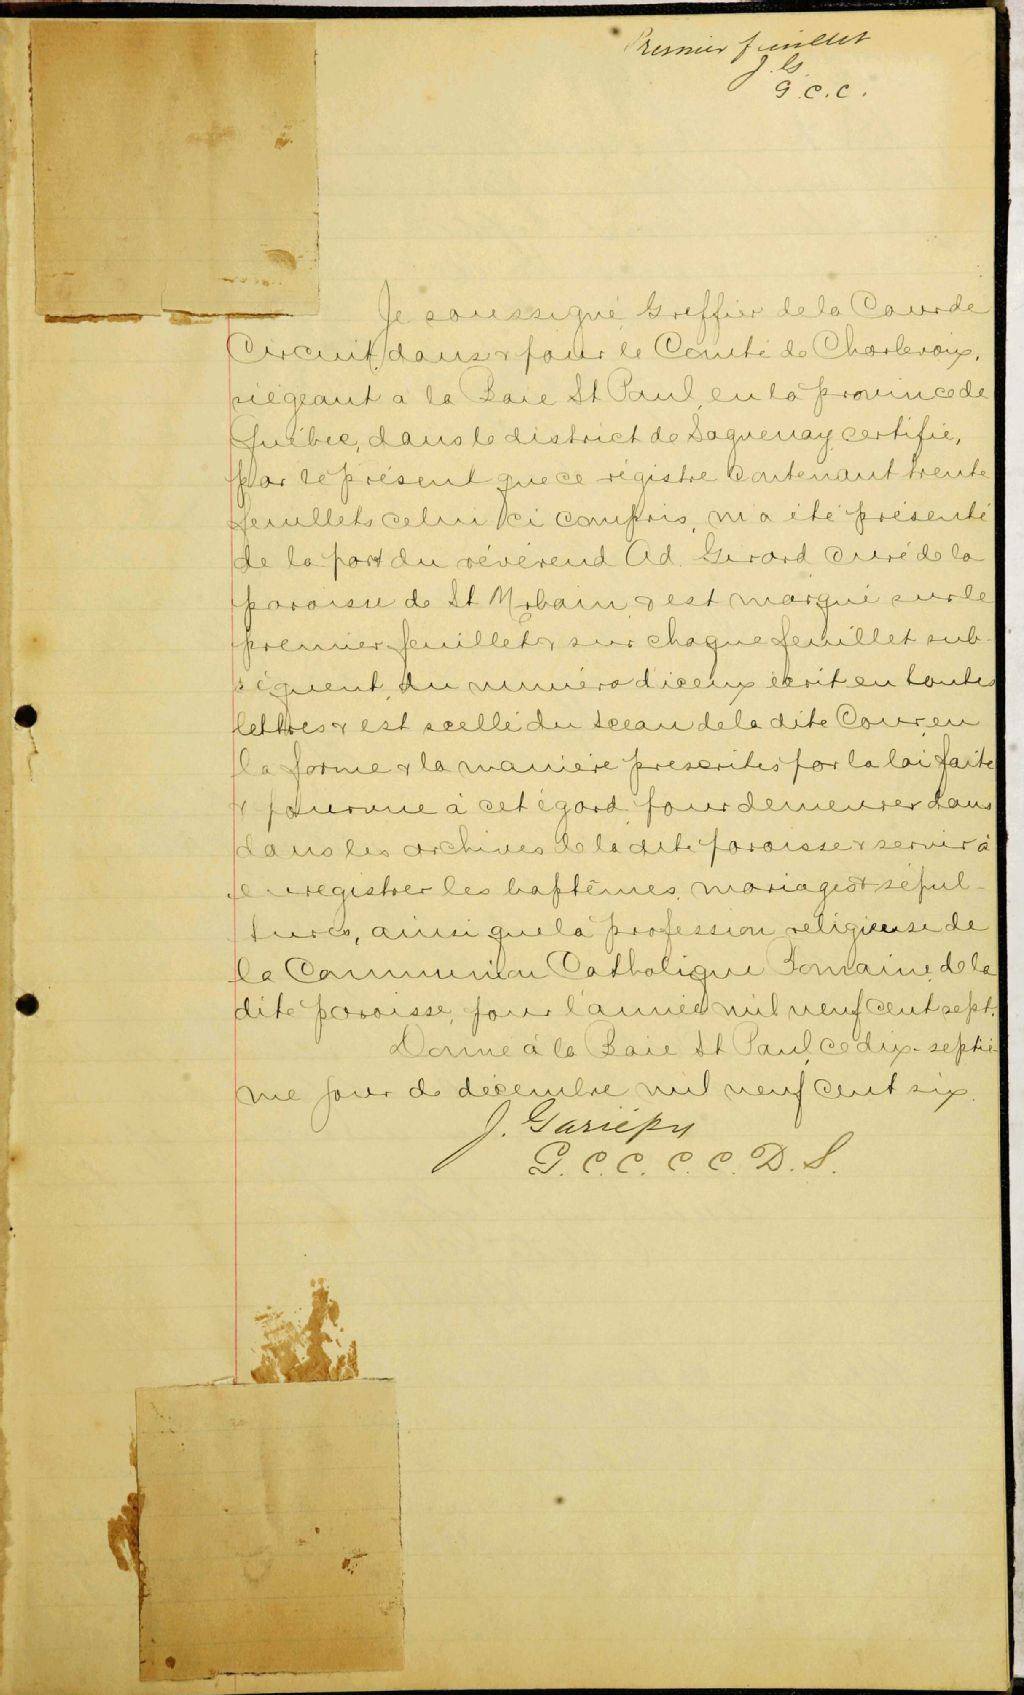 Premier feuillet
J. G.
G. C. C.
Je soussigné, Greffier de la Cour de
Circuit, dans & pour le Comté de Charlevoix,
siégeant à la Baie St Paul, en la province de
Québec, dans le district de Saguenay, certifie,
par le présent que ce régistre contenant trente
feuillets celui ci compris, m'a été présenté
de la part du révérend Ad. Girard curé de la
paroisse de St Urbain & est marqué sur le
premier feuillet & sur chaque feuillet sub-
séquent, du numéro d'iceux écrit en toutes
lettres & est scellé du sceau de la dite Cour, en
la forme & la manière prescrites par la loi faite
& pourvue à cet égard pour demeurer dans
dans les archives de la dite paroisse & servir à
enregistrer les baptêmes, mariages & sépul-
tures, ainsi que la profession religieuse de
la Communion Catholique Romaine, de la
dite paroisse, pour l'année mil neuf cent sept.
Donné à la Baie St Paul, ce dix-septiè
me jour de décembre mil neuf cent six.
J. Gariépy
G. C. C. C. C. D. S.